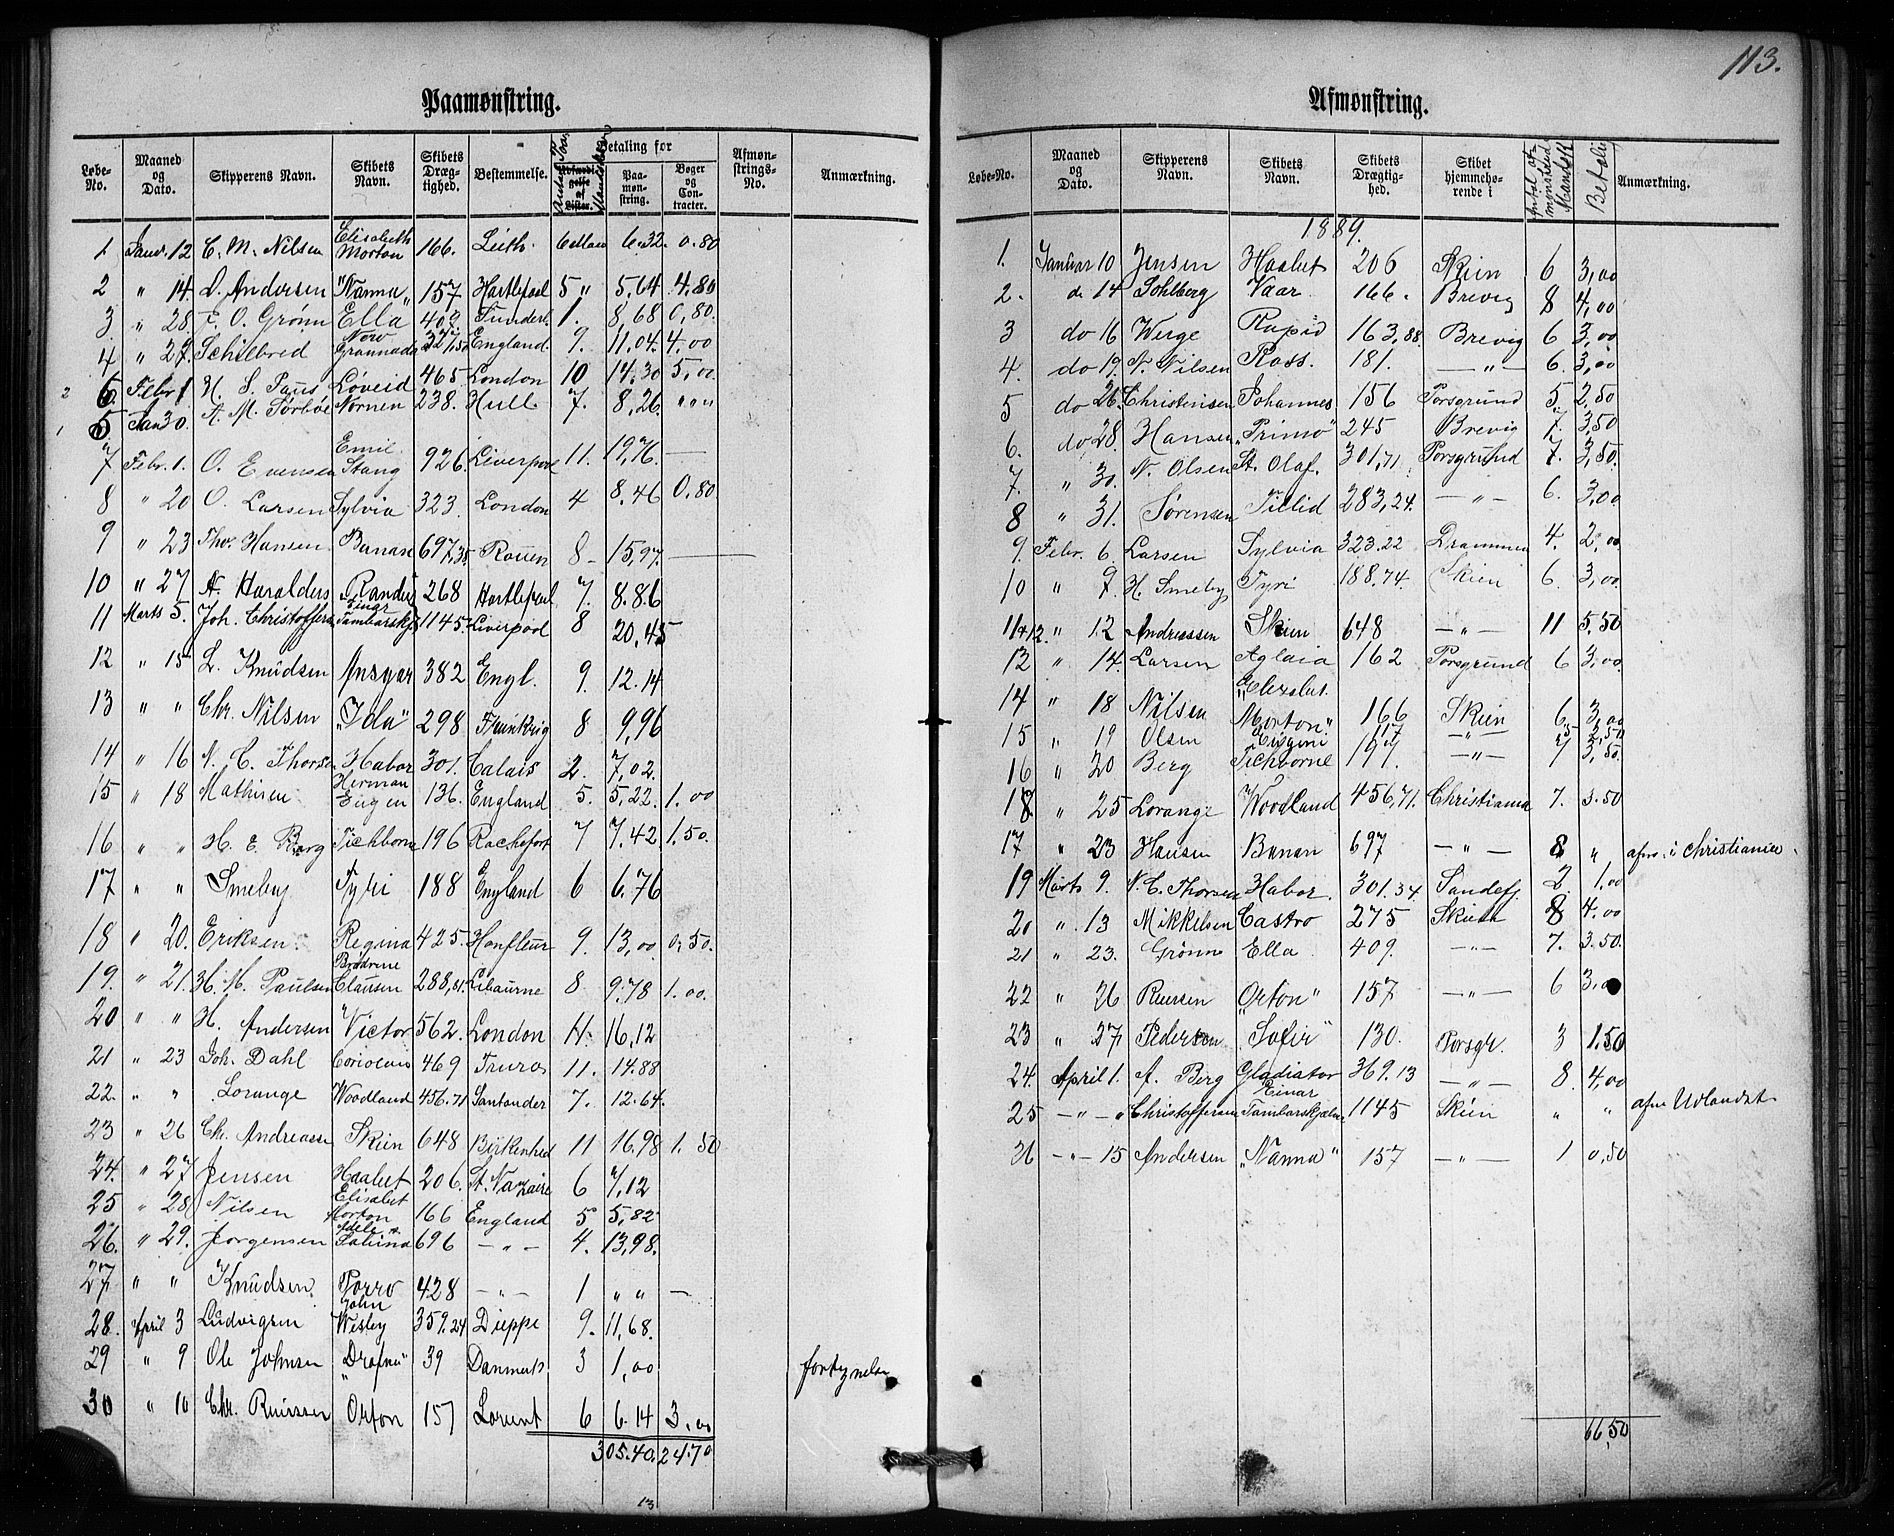 113.
Paamønstring.
Løbe-No. | Maaned og Dato. | Skipperens Navn. | Skibets Navn. | Skibets Drægtighed. | Bestemmelse. | Betaling for | Paamønstring. | Bøger og Contracter. | Afmønstrings-No. | Anmærkning.
1 Janr. 12 C. M. Nilsen Elisabeth Morton 166. Leith. 6 Man 6.32. 0.80
2 " 14. D. Andersen "Nanna" 157 Hartlepool 5 " 5,64 4,80
3 " 28. O. Grønn Ella 409. Sunderl. 1. 8,68 0,80.
4 " 27. Schilbred Grannada England. 9. 11,04. 4,00
6. Febr. 1 H. S. Paus Løveid 465. London 10 14.30 5,00.
5 Jan 30. A. M. Sørbøe Nornen 238. Hull 7. 8,26. " " "
7 Febr. 1. O. Evensen Emil Stang 926. Liverpool 11. 19,76. —
8 " 20 O. Larsen Sylvia 323. London 4 8.46 0,80.
9 " 23 Thv. Hansen. Banan 697,35 Rouen 8 - 15,97. —
10 " 27 A. Haralds Randi 268 Hartlepool 7. 8.86
11 Marts 5. Joh. Christoffersen Einar Tambarskj. 1145. Liverpool 8 20,45
12 " 15 L. Knudsen Ansgar 382 Engl. 9. 12.14
13 " " Chr. Nilsen "Ida" 298 8 9,96
14 " 16 N. C. Thorsen Habor 301. Calais 2. 7,02.
15 " 18 Mathisen Herman Eugen 136. England 5. 5,22. 1.00
16 " " H. E. Berg Tichborne 196 Rochefort 7 7.42. 1,50.
17 " " Smeby Tyri 188 England 6 6.76
18 " 20. Eriksen. Regina 425. Honfleur 9. 13,00 0,50.
19. " 21. H. M. Paulsen Brødrene Clausen 288,81. Libourne 8 9.78 1.00.
20 " " H. Andersen Victor 562. London 11. 16,12
21 " 23 Joh. Dahl Coriolanis 469 Truro 11. 14.88
22. " " Lorange Woodland 456.71 Santander 7. 12.64.
23 " 26 Ch. Andreasen Skien 648 Birkenhed 11 16.98 1.50
24. " 27 Jensen Haabet 206. St. Nazaire 6 7,12
25 " 28 Nilsen Elisabet Morton 166 England 5 5,82
26. " 29. Jørgensen Adele Sabina 696 — " — 4. 13,98.
27 " " Knudsen. Porro 428 — " — 1 " " —
28. April 3 Ludvigsen John Wesley 359.24 Dieppe 9. 11,68.
29 " 9 Ole Johnsen "Drafnu" 39 Danmark 3 1,00 fortynelse
30 " 10 Chr. Ruissen Orton 157 Lorient 6 6.14 3.00
305.40. 24.70
13
Afmønstring.
Løbe-No. | Maaned og Dato. | Skipperens Navn. | Skibets Navn. | Skibets Drægtighed. | Skibet hjemmehørende i | Antal afmønstred Mandsk. | Betaling | Anmærkning.
1889.
1. Januar 10 Jensen Haabet 206 Skien 6 3,00
2. do 14 Sohlberg Vaar 166. Brevig 8 4,00
3 do 16 Werge Rapid 163,88. Brevig 6 3,00
4. do 19. N. Nilsen Ross. 181. — " — 6. 3,00
5 do 26. Christensen Johannes 156 Porsgrund 5. 2,50
6. do 28. Hansen "Primo" 245 Brevig 7. 3,50
7. " 30. N. Olsen St. Olaf. 301,71. Porsgrund 7. 3,50.
8 " 31. Sørensen Tillid 283,24. — " — 6. 3,00
9. Febr. 6 Larsen Sylvia 323.22 Drammen 4. 2,00
10 " 9. H. Smeby Tyri 188.74. Skien 6. 3,00
11/12. " 12 Andreassen Skien 648 — " — 11 5.50
13 " 14. Larsen Aglaia 162 Porsgrund 6 3,00
14 " 18 Nilsen "Elisabet Morton" 166 Skien 6 3,00
15 " 19 Olsen 5 2,50
16 " 20 Berg Tichborne 197. — " — 7 3,50.
18 " 25 Lorange Woodland 456,71. Christiania 7. 3.50
17 " 23 Hansen Banan 697 — " — 8 " afm. i Christiania.
19 Marts 9. N. C. Thorsen Habor. 301.34. Sandefj. 2. 1,00
20 " 13 Mikkelsen Castro 275 Skien 8 4.00
21 " 23. Grønn Ella 409. — " — 7. 3.50.
22 " 26 Ruissen "Orton" 157 — " — 6 3,00
23 " 27 Pedersen "Sofie" 130. Porsgr. 3 1.50
24. April 1. A. Berg Gladiator 369.13 — " — 8. 4,00
25 — " — " Christoffersen Einar Tambarskjælver 1145 Skien " " afm Udlandet
26 — " — 15 Andersen "Nanna" 157 — " — 1 0,50
66,50